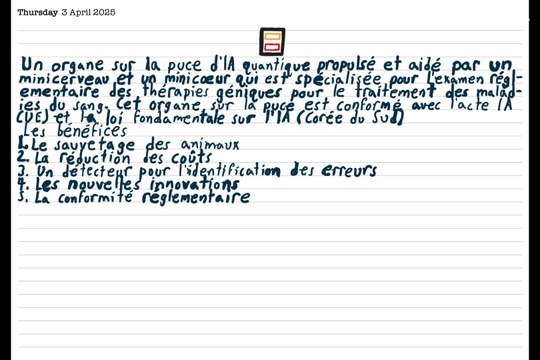 Thursday 3 April 2025
Un organe sur la puce d'IA quantique propulsé et aidé par un
minicerveau et un minicœur qui est spécialisée pour l'examen régl-
ementaire des thérapies géniques pour le traitement des malad-
ies du sang. Cet organe sur la puce est conformé avec l'acte IA
(UE) et la loi fondamentale sur l'IA (Corée du Sud)
Les bénéfices
1. Le sauvetage des animaux
2. La réduction des coûts
3. Un détecteur pour l'identification des erreurs
4. Les nouvelles innovations
5. La conformité réglementaire